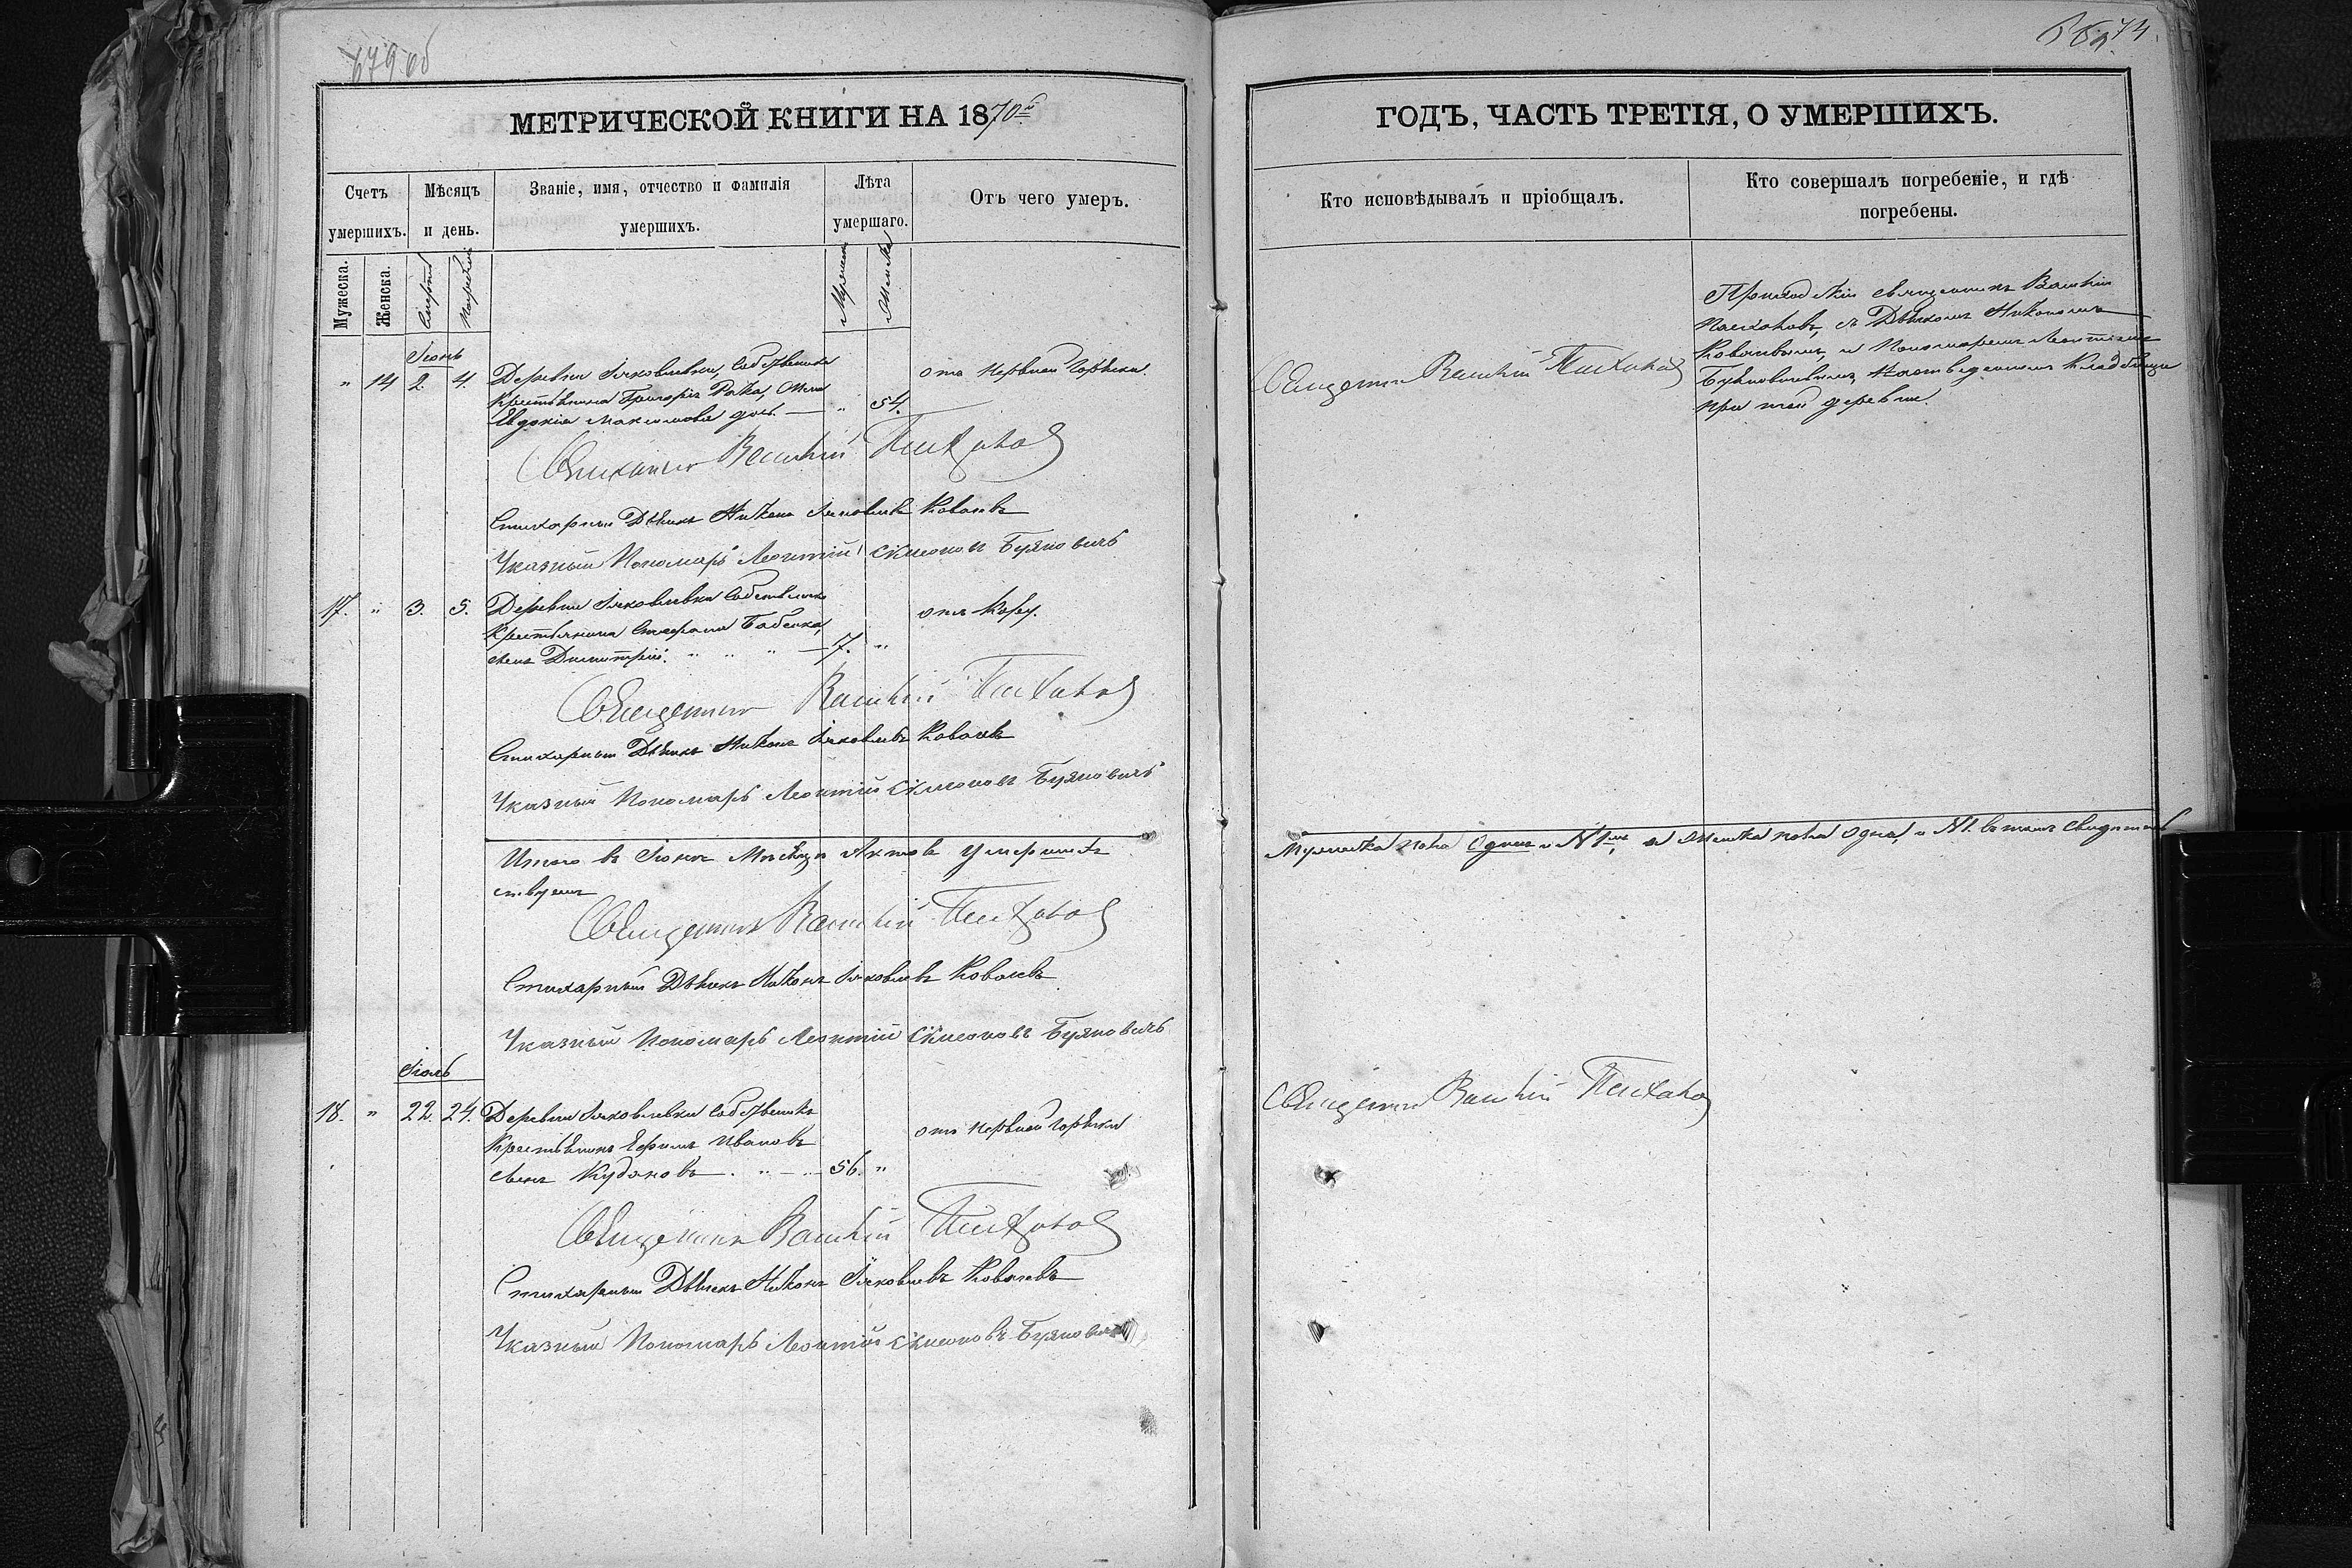 679 об
МЕТРИЧЕСКОЙ КНИГИ НА 1870й
Счетъ умершихъ.
Мѣсяцъ и день.
Званіе, имя, отчество и фамилія умершихъ.
Лѣта умершаго.
Отъ чего умеръ.
Мужеска.
Женска.
Смерти
Погребенія
Мужеска
Женска
Іюнь
" 14 2. 4. Деревни Яковлевки, Собственника
Крестьянина Григорія жена
Евдокія Максимова дочь. — " 54.
отъ нервной Горячки.
Священникъ Василій Пасхаловъ
Стихарный Дьячекъ Никонъ Яковлевъ Ковалевъ
Указный Пономарь Леонтій Симеоновъ Буяновичъ
17. " 3. 5. Деревни Яковлевки Собственника
Крестьянина Стефана Бабенка,
сынъ Димитрій. " " " — 7. "
отъ Кору.
Священникъ Василій Пасхаловъ
Стихарный Дьячекъ Никонъ Яковлевъ Ковалевъ
Указный Пономарь Леонтій Симеоновъ Буяновичъ
Итого въ Іюнѣ Мѣсяцѣ Актовъ умершихъ
ствуемъ
Священникъ Василій Пасхаловъ
Стихарный Дьячекъ Никонъ Яковлевъ Ковалевъ
Указный Пономарь Леонтій Симеоновъ Буяновичъ
Іюль
18. " 22. 24. Деревни Яковлевки Собственникъ
Крестьянинъ Ефимъ Ивановъ
сынъ Кудяковъ — . " — .. 56. "
отъ нервной горячки
Священникъ Василій Пасхаловъ
Стихарный Дьячекъ Никонъ Яковлевъ Ковалевъ
Указный Пономарь Леонтій Симеоновъ Буяновичъ
74.
ГОДЪ, ЧАСТЬ ТРЕТІЯ, О УМЕРШИХЪ.
Кто исповѣдывалъ и пріобщалъ.
Кто совершалъ погребеніе, и гдѣ
погребены.
Священникъ Василій Пасхаловъ
Приходскій священникъ Василій
Пасхаловъ, съ Дьячкомъ Никономъ
Ковалевымъ, и Пономаремъ Леонтіемъ
Буяновичемъ, на отведенномъ Кладбищѣ
при той деревнѣ.
Мужеска пола Одинъ и №1й, а женска пола одна, и №1. въ томъ свидетель
Священникъ Василій Пасхаловъ